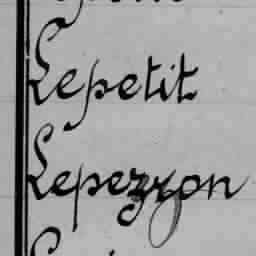 Lepetit
Lepezron